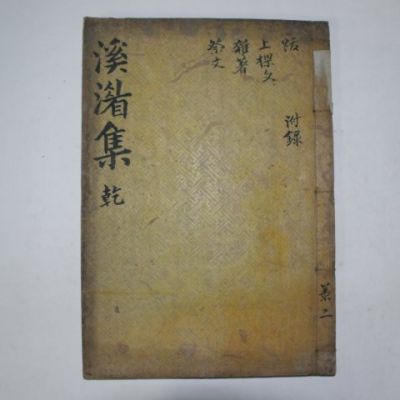 跋
上樑文
雜著
祭文
附錄
溪潲集 乾
共二